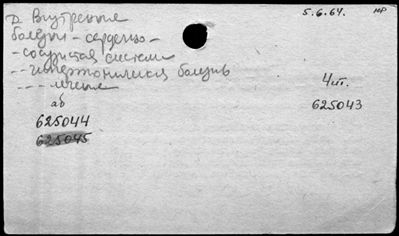 Д Внутренние 5.6.64. МР
болезни - сердечно-
- сосудистая система
-- гипертоническая болезнь
--- лечение 4 шт.
аб 625043
625044
625045